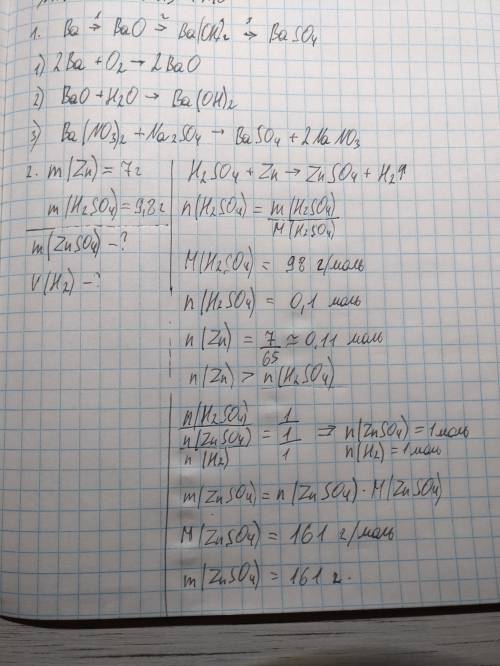 1. Ba →¹ BaO →² Ba(OH)₂ →³ BaSO₄
1) 2Ba + O₂ → 2BaO
2) BaO + H₂O → Ba(OH)₂
3) Ba(NO₃)₂ + Na₂SO₄ → BaSO₄ + 2NaNO₃
2. m(Zn) = 7г
m(H₂SO₄) = 9,8г
m(ZnSO₄) - ?
V(H₂) - ?
H₂SO₄ + Zn → ZnSO₄ + H₂↑
n(H₂SO₄) = m(H₂SO₄) / M(H₂SO₄)
M(H₂SO₄) = 98 г/моль
n(H₂SO₄) = 0,1 моль
n(Zn) = 7/65 ≈ 0,11 моль
n(Zn) > n(H₂SO₄)
n(H₂SO₄) 1
n(ZnSO₄) = 1 ⇒ n(ZnSO₄) = 1моль
n(H₂) 1 n(H₂) = 1моль
m(ZnSO₄) = n(ZnSO₄) · M(ZnSO₄)
M(ZnSO₄) = 161 г/моль
m(ZnSO₄) = 161 г.